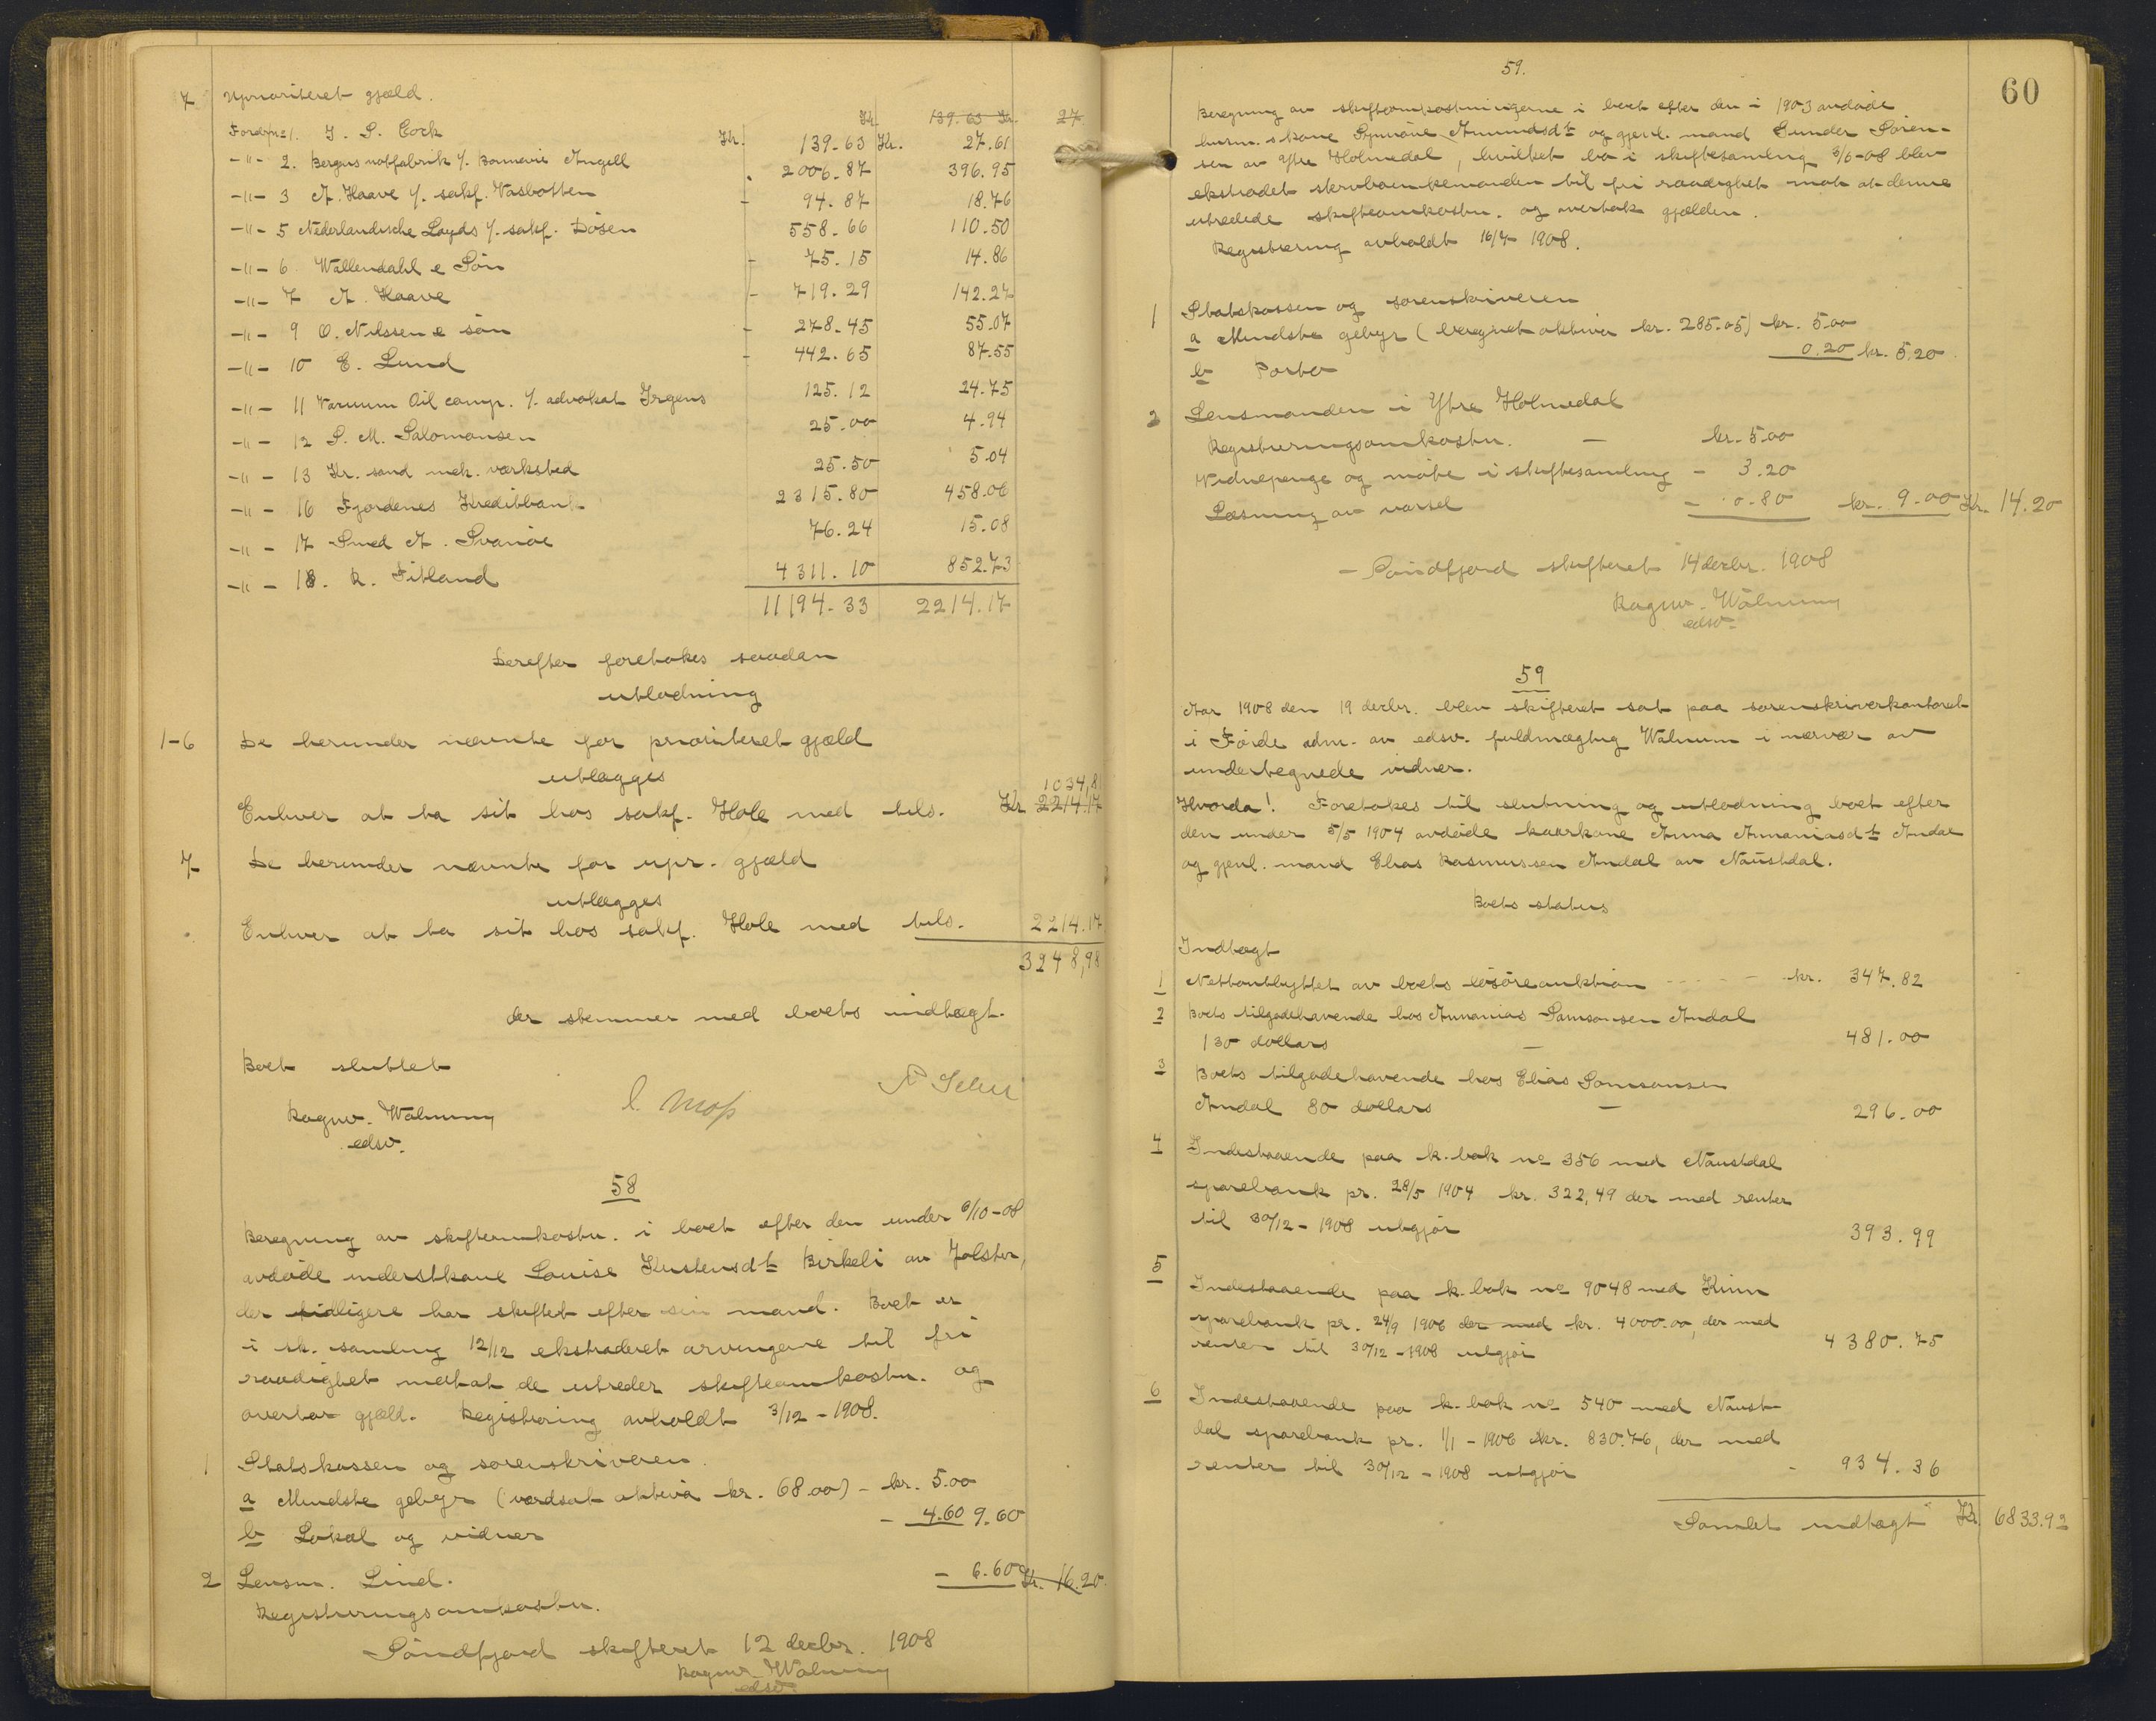 7 Uprioriteret gjæld.
Kr. 139.63 Kr. 27
Fordr. no 1. J. S. Cock Kr. 139.63 Kr. 27.61
-"- 2. Bergens notfabrik v. Bonnevie Angell 2006.87 396.95
-"- 3 A. Haave v. sakf. Vasbotten - 94.87 18.76
-"- 5 Nederlandische Loyds v. sakf. Døsen 558.66 110.50
-"- 6 Wallendahl & Søn - 75.15 14.86
-"- 7 A. Haave - 719.29 142.27
-"- 9 O. Nilssen & søn - 278.45 55.07
-"- 10 E. Lund - 442.65 87.55
-"- 11 Vacuum Oil comp. v. advokat Irgens 125.12 24.75
-"- 12 S. M. Salomonsen 25.00 4.94
-"- 13 Kr. sand mek. værksted 25.50 5.04
-"- 16 Fjordenes Kreditbank 2315.80 458.06
-"- 17 Smed A. Svanøe 76.24 15.08
-"- 18. R. Fitland 4311.10 852.73
11194.33 2214.17
Derefter foretokes saadan
utlodning
1-6 De herunder nævnte for prioriteret gjæld
utlægges
1034,81
Enhver at ta sit hos sakf. Hole med tils. Kr 2214.17
7 De herunder nævnte for upr. gjæld
utlægges
Enhver at ta sit hos sakf. Hole med tils. 2214.17
3248,98
der stemmer med boets indtægt.
Boet sluttet
Ragnv. Walnum
edsv.
l. Moss
58
Beregning av skifteomkostn. i boet efter den under 6/10-08
avdøde inderstkone Louise Kristensdt Birkeli av Jølster,
der tidligere har skiftet efter sin mand. Boet er
i sk. samling 12/12 ekstraderet arvingerne til fri
raadighet mot at de utreder skifteomkostn. og
overtar gjæld. Registrering avholdt 3/12-1908.
1 Statskassen og sorenskriveren.
a Mindste gebyr (værdsat aktiva kr. 68.00) - kr. 5.00
b Lokal og vidner - 4.60 9.60
2 Lensm. Lind.
Registreringsomkostn. - 6.60 Kr. 16.20
Søndfjord skifteret 12 decbr. 1908
Ragnv. Walnum
edsv.
59.
60
Beregning av skifteomkostningerne i boet efter den i 1903 avdøde
husm.skone Synnøve Amundsdt og gjenl. mand Gunder Søren-
sen av Ytre Holmedal, hvilket bo i skiftesamling 3/6-08 blev
ekstradet skrivenkemanden til fri raadighet mot at denne
utredede skifteomkostn. og overtok gjælden.
Registrering avholdt 16/7-1908.
1 Statskassen og sorenskriveren
a Mindste gebyr (beregnet aktiva kr. 285.05) kr. 5.00
b Porto 0.20 kr. 5.20
2 Lensmanden i Ytre Holmedal
Registreringsomkostn. - kr. 5.00
Vidnepenge og møte i skiftesamling - 3.20
Læsning av varsel - 0.80 kr. 9.00 Kr. 14.20
Søndfjord skifteret 14 decbr. 1908
Ragnv. Walnum
edsv.
59
Aar 1908 den 19 decbr. blev skifteret sat paa sorenskriverkontoret
i Førde adm. av edsv. fuldmægtig Walnum i nærvær av
undertegnede vidner.
Hvorda! Foretokes til slutning og utlodning boet efter
den under 5/5 1904 avdøde kaarkone Anna Ananiasdt Andal
og gjenl. mand Elias Rasmussen Andal av Naustdal.
Boets status
Indtægt
1 Nettoutbyttet av boets løsøreauktion - - - - kr. 347.82
2 Boets tilgodehavende hos Annanias Samsonsen Andal
130 dollars - 481.00
3 Boets tilgodehavende hos Elias Samsonsen
Andal 80 dollars - 296.00
4 Indestaaende paa k. bok no 356 med Naustdal
sparebank pr. 28/5 1904 kr. 322,49 der med renter
til 30/12-1908 utgjør 393.99
5 Indestaaende paa k. bok no 9048 med Kinn
sparebank pr. 24/9 1906 der med kr. 4000.00, der med
renter til 30/12-1908 utgjør 4380.75
6 Indestaaende paa k. bok no 540 med Naust-
dal sparebank pr. 1/1-1906 kr. 830.76, der med
renter til 30/12-1908 utgjør - 934.36
Samlet indtægt Kr. 6833.92